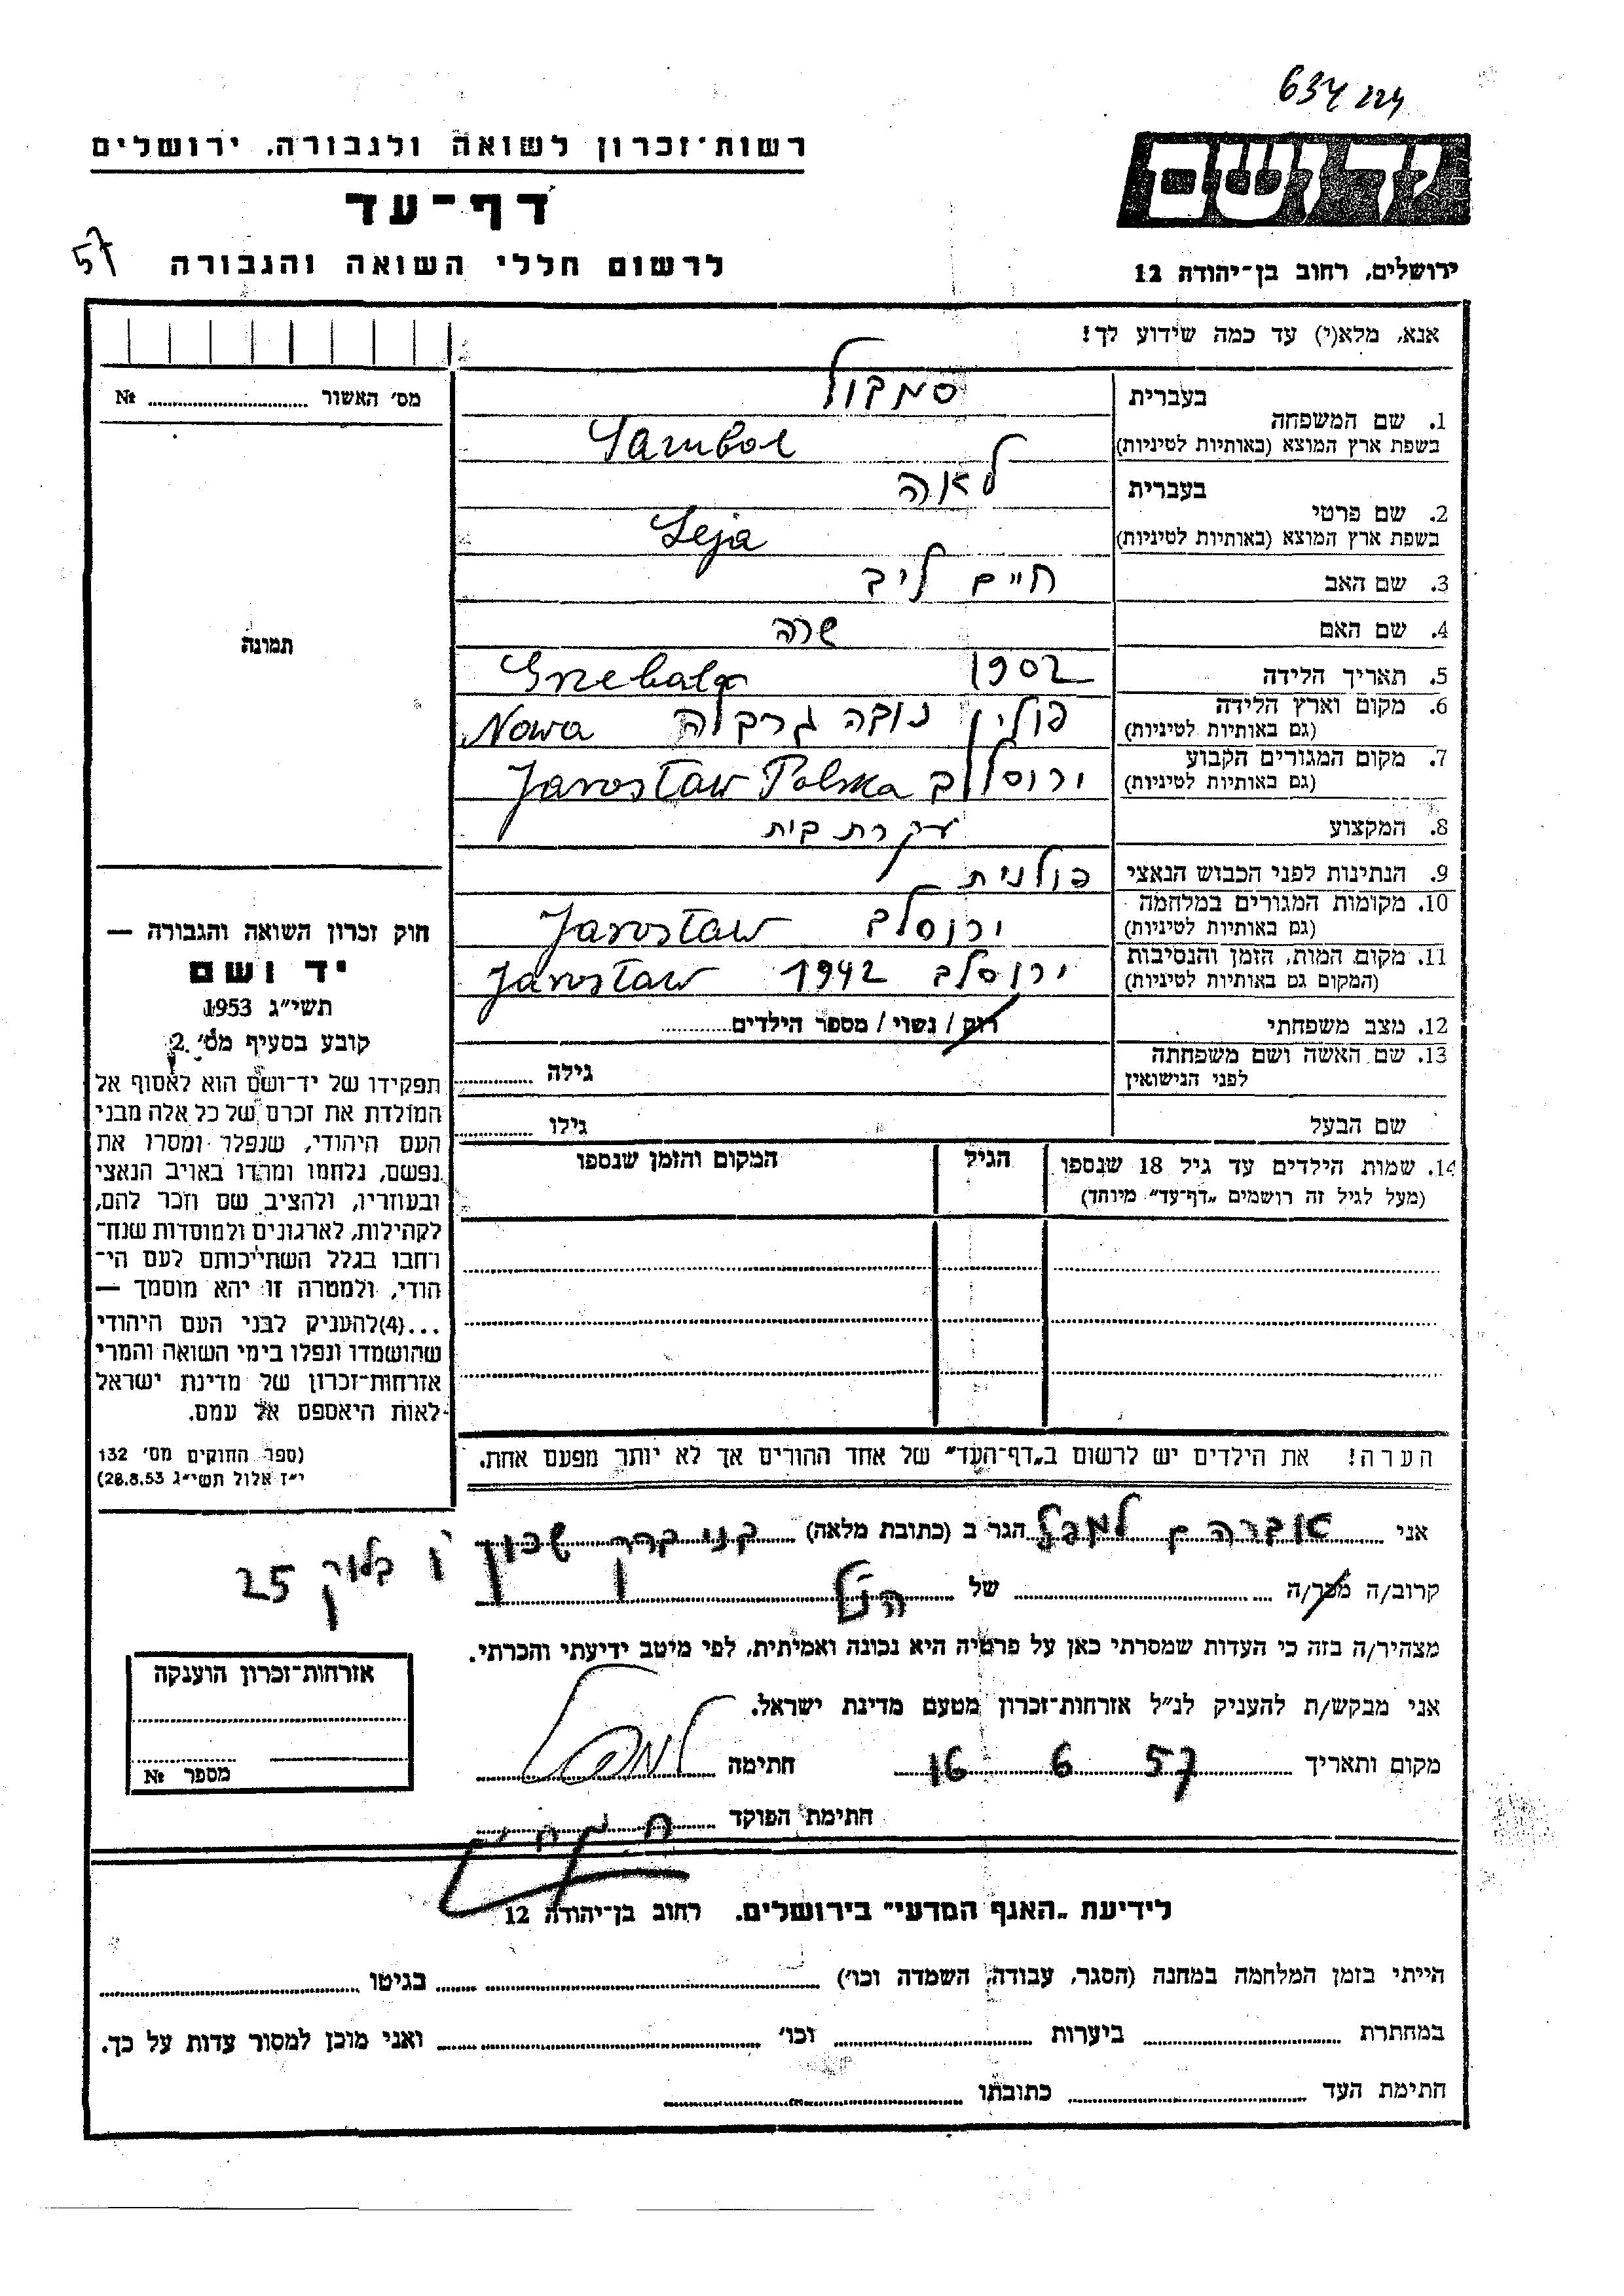 634 224
רשות־זכרון לשואה ולגבורה, ירושלים
יד ושם
דף־עד
57
לרשום חללי השואה והגבורה
ירושלים, רחוב בן־יהודה 12
אנא, מלא(י) עד כמה שידוע לך!
מס׳ האשור № 
1. שם המשפחה בעברית סמבול
בשפת ארץ המוצא (באותיות לטיניות) Sambol
2. שם פרטי בעברית לאה
בשפת ארץ המוצא (באותיות לטיניות) Leja
3. שם האב חיים ליב
4. שם האם שרה
תמונה
5. תאריך הלידה 1902 Grebala
6. מקום וארץ הלידה (גם באותיות לטיניות) פולין נובה גרבלה Nowa
7. מקום המגורים הקבוע (גם באותיות לטיניות) ירוסלב Jarosław Polska
8. המקצוע עקרת בית
9. הנתינות לפני הכבוש הנאצי פולנית
10. מקומות המגורים במלחמה (גם באותיות לטיניות) ירוסלב Jarosław
11. מקום המות, הזמן והנסיבות (המקום גם באותיות לטיניות) ירוסלב 1942 Jarosław
12. מצב משפחתי רוק / נשוי / מספר הילדים
13. שם האשה ושם משפחתה לפני הנישואין גילה
שם הבעל גילו
14. שמות הילדים עד גיל 18 שנספו הגיל המקום והזמן שנספו
(מעל לגיל זה רושמים „דף־עד״ מיוחד)
חוק זכרון השואה והגבורה —
יד ושם
תשי״ג 1953
קובע בסעיף מס׳ 2
תפקידו של יד־ושם הוא לאסוף אל
המולדת את זכרם של כל אלה מבני
העם היהודי, שנפלו ומסרו את
נפשם, נלחמו ומרדו באויב הנאצי
ובעוזריו, ולהציב שם וזכר להם,
לקהילות, לארגונים ולמוסדות שנח־
רחבו בגלל השתייכותם לעם הי־
הודי, ולמטרה זו יהא מוסמך —
...(4)להעניק לבני העם היהודי
שהושמדו ונפלו בימי השואה והמרי
אזרחות־זכרון של מדינת ישראל
לאות היאספם אל עמם.
(ספר החוקים מס׳ 132
י״ז אלול תשי״ג 28.8.53)
הערה! את הילדים יש לרשום ב„דף־העד״ של אחד ההורים אך לא יותר מפעם אחת.
אני אברהם הגר ב (כתובת מלאה) בני ברק שכון ו בלוק 25
קרוב/ה מכר/ה של
מצהיר/ה בזה כי העדות שמסרתי כאן על פרטיה היא נכונה ואמיתית, לפי מיטב ידיעתי והכרתי.
אני מבקש/ת להעניק לנ״ל אזרחות־זכרון מטעם מדינת ישראל.
מקום ותאריך 16 6 57 חתימה
חתימת הפוקד
אזרחות־זכרון הוענקה
מספר №
לידיעת „האגף המדעי״ בירושלים. רחוב בן־יהודה 12
הייתי בזמן המלחמה במחנה (הסגר, עבודה, השמדה וכו׳) בגיטו
במחתרת ביערות וכו׳ ואני מוכן למסור עדות על כך.
חתימת העד כתובתו